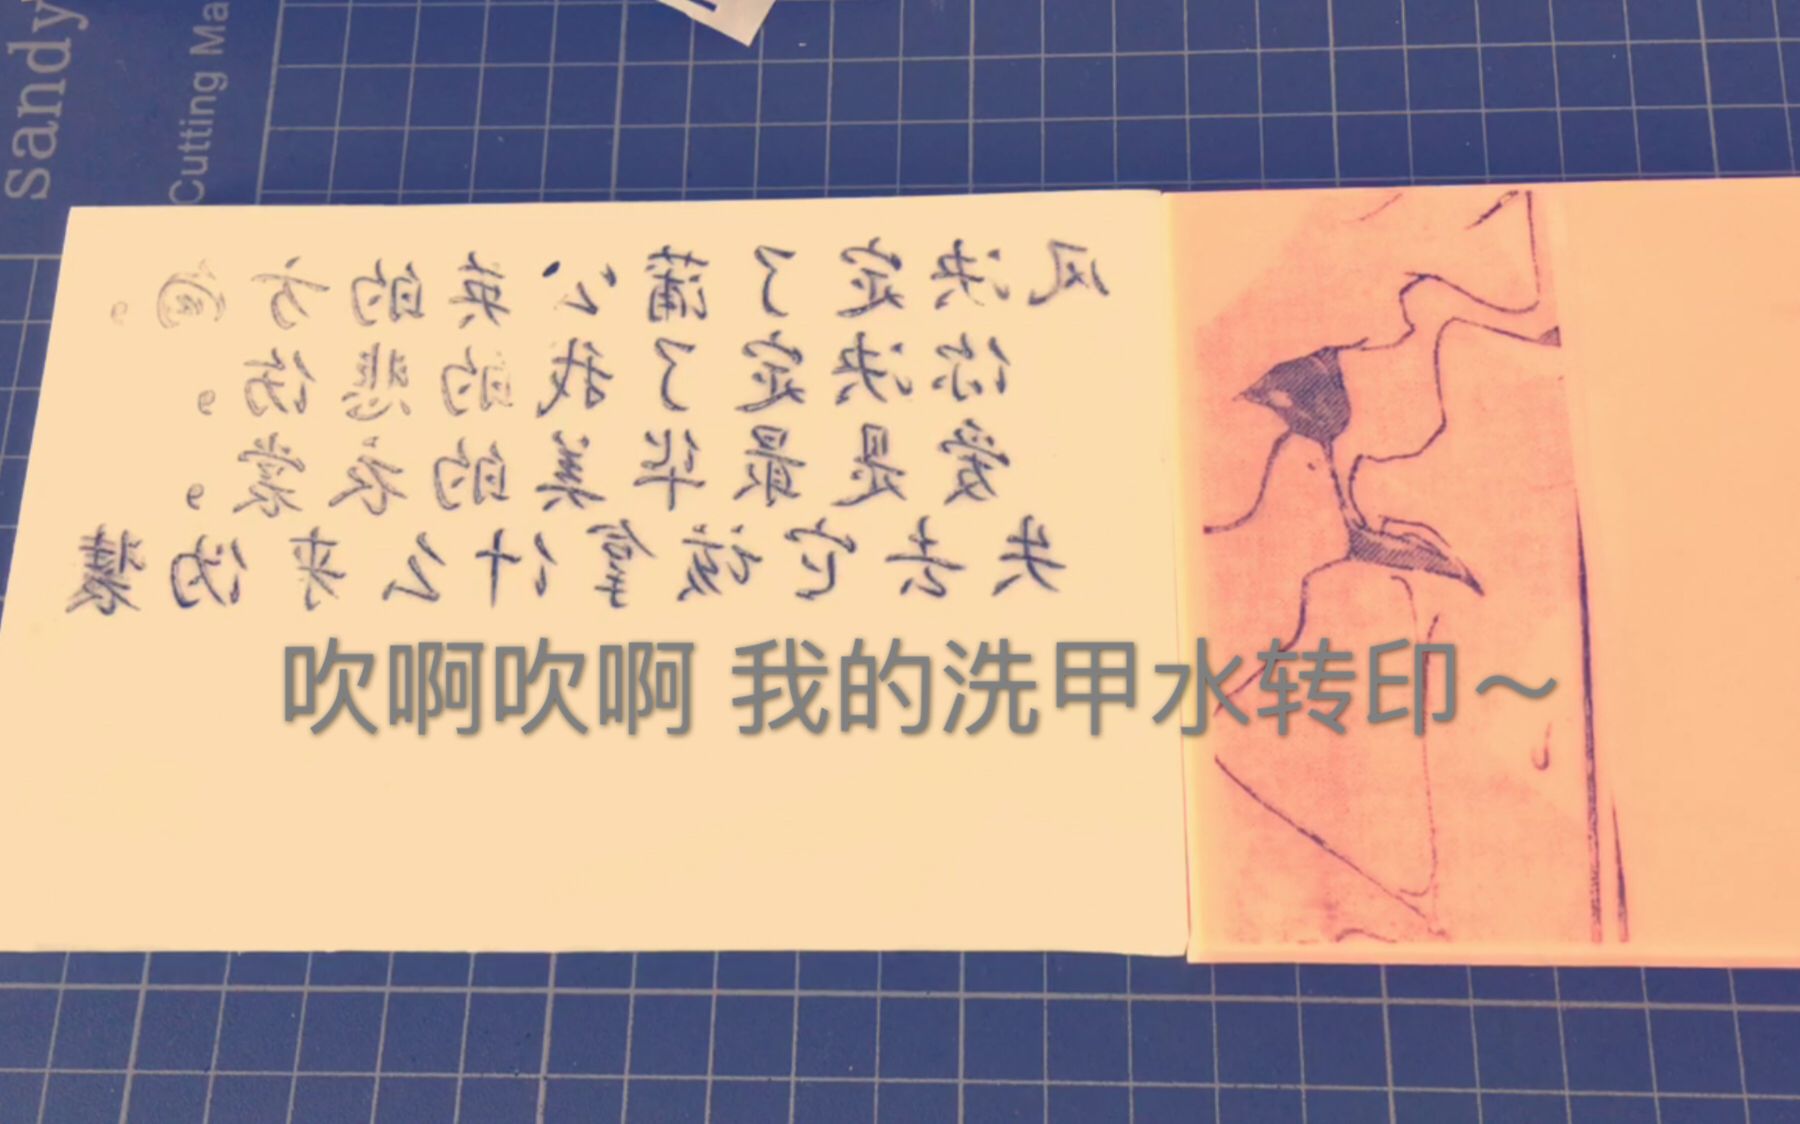 Sandy
Cutting Ma
风决定了蒲公英的方向。
你决定了我的悲伤。
爱是最华美的衣裳。
失去它该拿什么来伪装
吹啊吹啊 我的洗甲水转印～